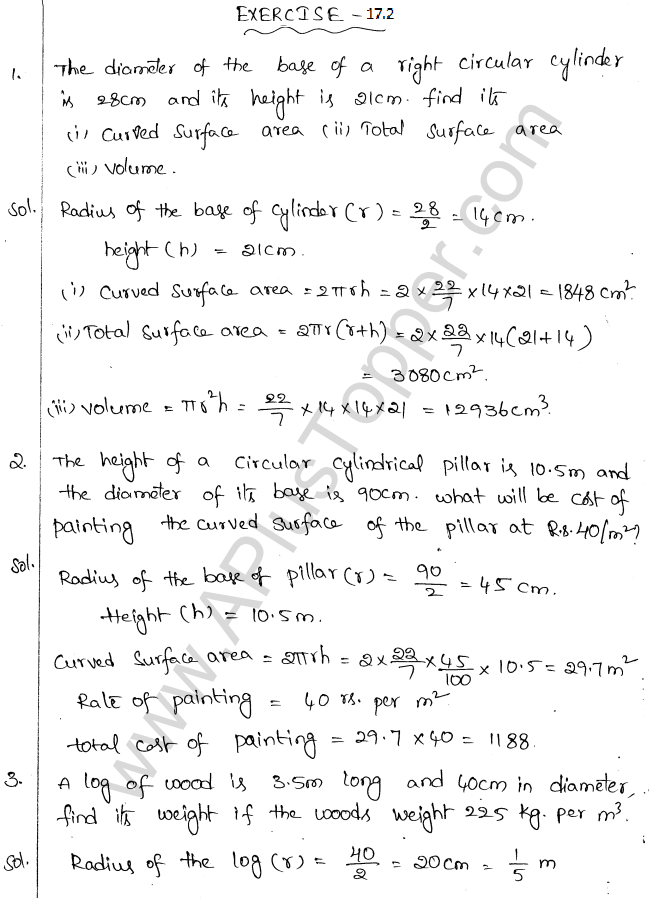 EXERCISE - 17.2
1. The diameter of the base of a right circular cylinder
is 28cm and its height is 21cm. find its
(i) Curved Surface area (ii) Total Surface area
(iii) Volume.
Sol. Radius of the base of cylinder (r) = 28/2 = 14cm.
height (h) = 21cm.
(i) Curved Surface area = 2πrh = 2 × 22/7 × 14 × 21 = 1848 cm².
(ii) Total Surface area = 2πr(r+h) = 2 × 22/7 × 14(21+14)
= 3080cm².
(iii) Volume = πr²h = 22/7 × 14 × 14 × 21 = 12936cm³.
2. The height of a circular cylindrical pillar is 10.5m and
the diameter of its base is 90cm. what will be cost of
painting the curved surface of the pillar at R.s.40/m²?
Sol. Radius of the base of pillar (r) = 90/2 = 45 cm.
Height (h) = 10.5m.
Curved Surface area = 2πrh = 2 × 22/7 × 45/100 × 10.5 = 29.7m²
Rate of painting = 40 rs. per m²
total cost of painting = 29.7 × 40 = 1188.
3. A log of wood is 3.5m long and 40cm in diameter,
find its weight if the woods weight 225 kg. per m³.
Sol. Radius of the log (r) = 40/2 = 20cm = 1/5 m
www.APlusTopper.com